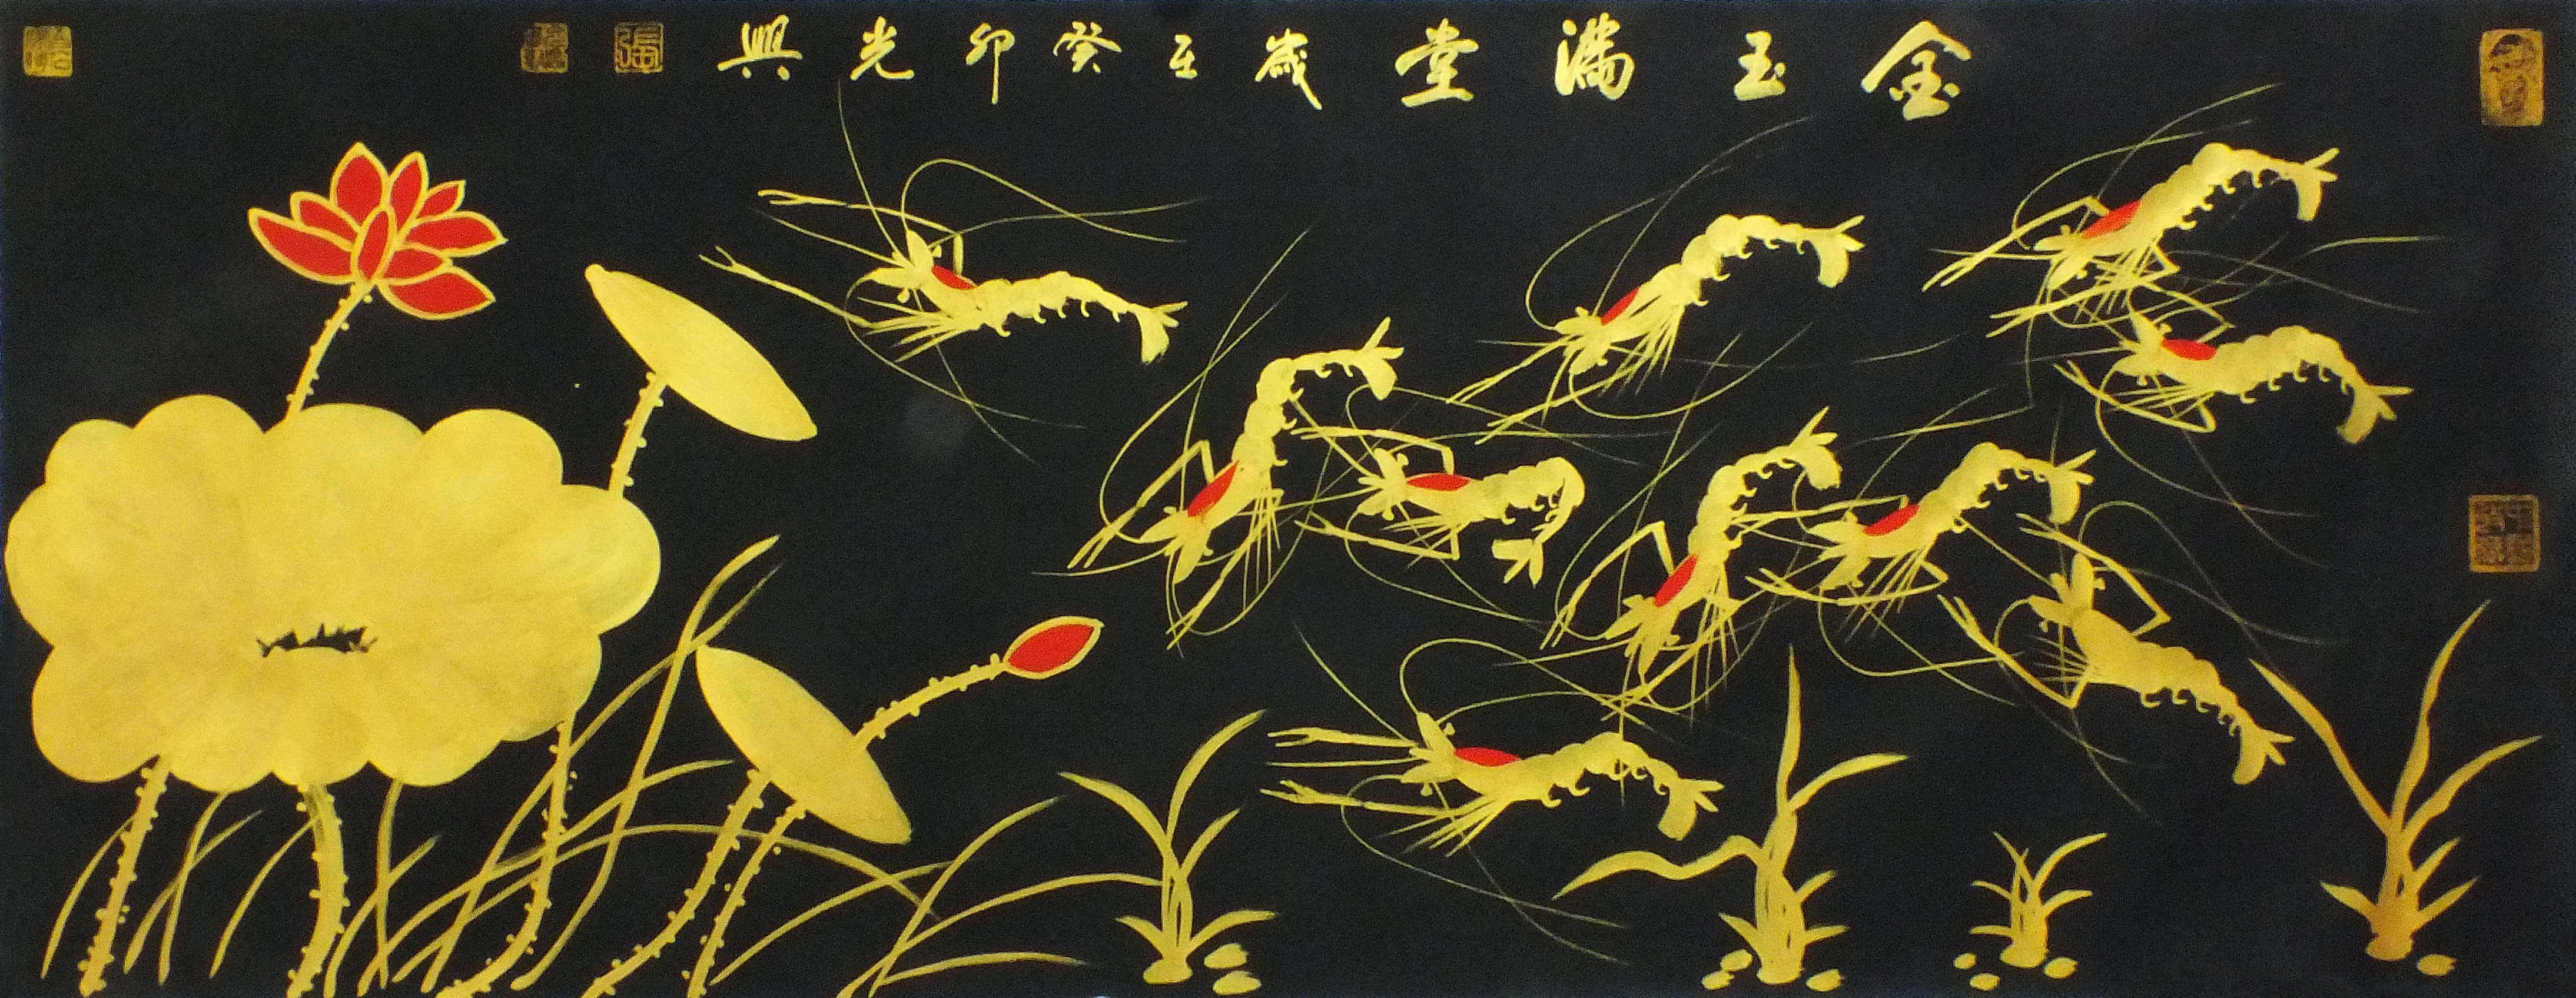 金玉滿堂歲在癸卯光興
張